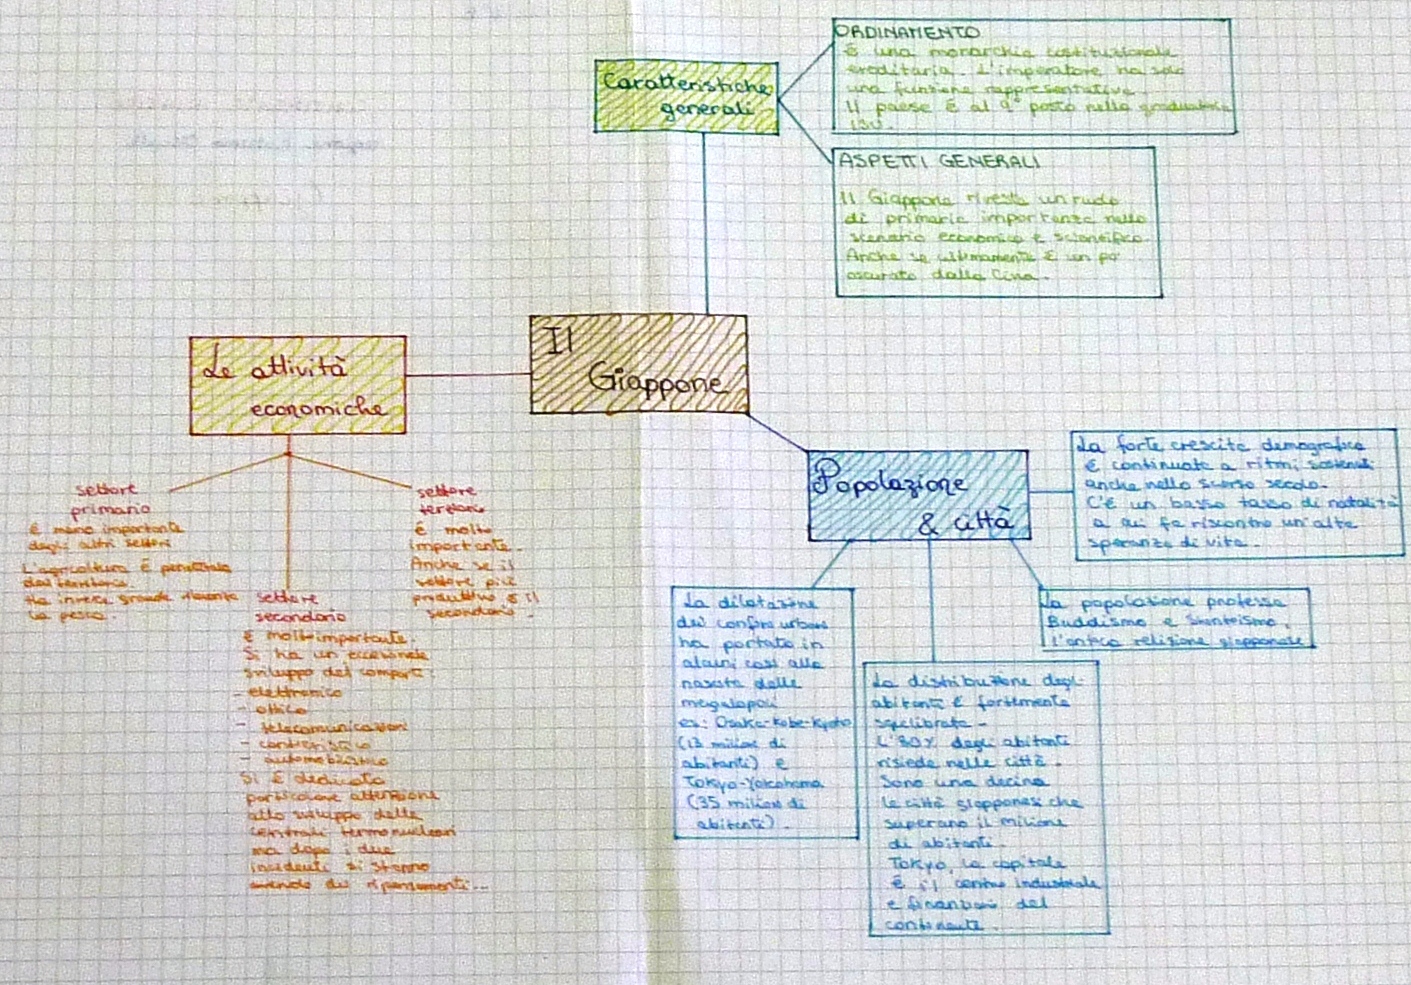 Caratteristiche
generali
ORDINAMENTO
È una monarchia costituzionale
ereditaria. L'imperatore ha solo
una funzione rappresentativa.
Il paese è al 9° posto nella graduatoria
ISU.
ASPETTI GENERALI
Il Giappone riveste un ruolo
di primaria importanza nello
scenario economico e scientifico.
Anche se ultimamente è un po'
oscurato dalla Cina.
Il
Giappone
Le attività
economiche
settore
primario
È meno importante
degli altri settori
L'agricoltura è penalizzata
dal territorio.
Ha invece grande
la pesca.
settore
secondario
È molto importante.
Si ha un eccezionale
sviluppo dei comparti:
- elettronico
- ottico
- telecomunicazioni
- cantieristico
- automobilistico
Si è dedicata
particolare attenzione
allo sviluppo delle
centrali termonucleari
ma dopo i due
incidenti si stanno
avendo dei ripensamenti...
settore
terziario
È molto
importante.
Anche se il
settore più
produttivo è il
secondario.
Popolazione
& città
La forte crescita demografica
è continuata a ritmi sostenuti
anche nello scorso secolo.
C'è un basso tasso di natalità
a cui fa riscontro un'alta
speranza di vita.
La popolazione professa
Buddismo e Shintoismo,
l'antica religione giapponese
La dilatazione
dei confini urbani
ha portato in
alcuni casi alla
nascita delle
megalopoli
es: Osaka-Kobe-Kyoto
(13 milioni di
abitanti) e
Tokyo-Yokohama
(35 milioni di
abitanti).
La distribuzione degli
abitanti è fortemente
squilibrata.
L'80% degli abitanti
risiede nelle città.
Sono una decina
le città giapponesi che
superano il milione
di abitanti.
Tokyo, la capitale
è il centro industriale
e finanziario del
continente.